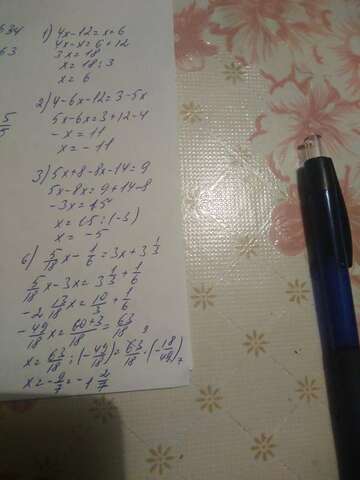 534
63
5/5
1) 4x-12=x+6
4x-x=6+12
3x=18
x=18:3
x=6
2) 4-6x-12=3-5x
5x-6x=3+12-4
-x=11
x=-11
3) 5x+8-8x-14=9
5x-8x=9+14-8
-3x=15
x=15:(-3)
x=-5
6) 5/18 x - 1/6 = 3x + 3 1/3
5/18 x - 3x = 3 1/3 + 1/6
-2 13/18 x = 10/3 + 1/6
-49/18 x = 60+3/18 = 63/18
x = 63/18 : (-49/18) = 63/18 · (-18/49) 9 7
x = -9/7 = -1 2/7